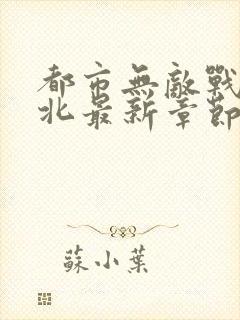 都市無敵戰
北最新章節
蘇小葉